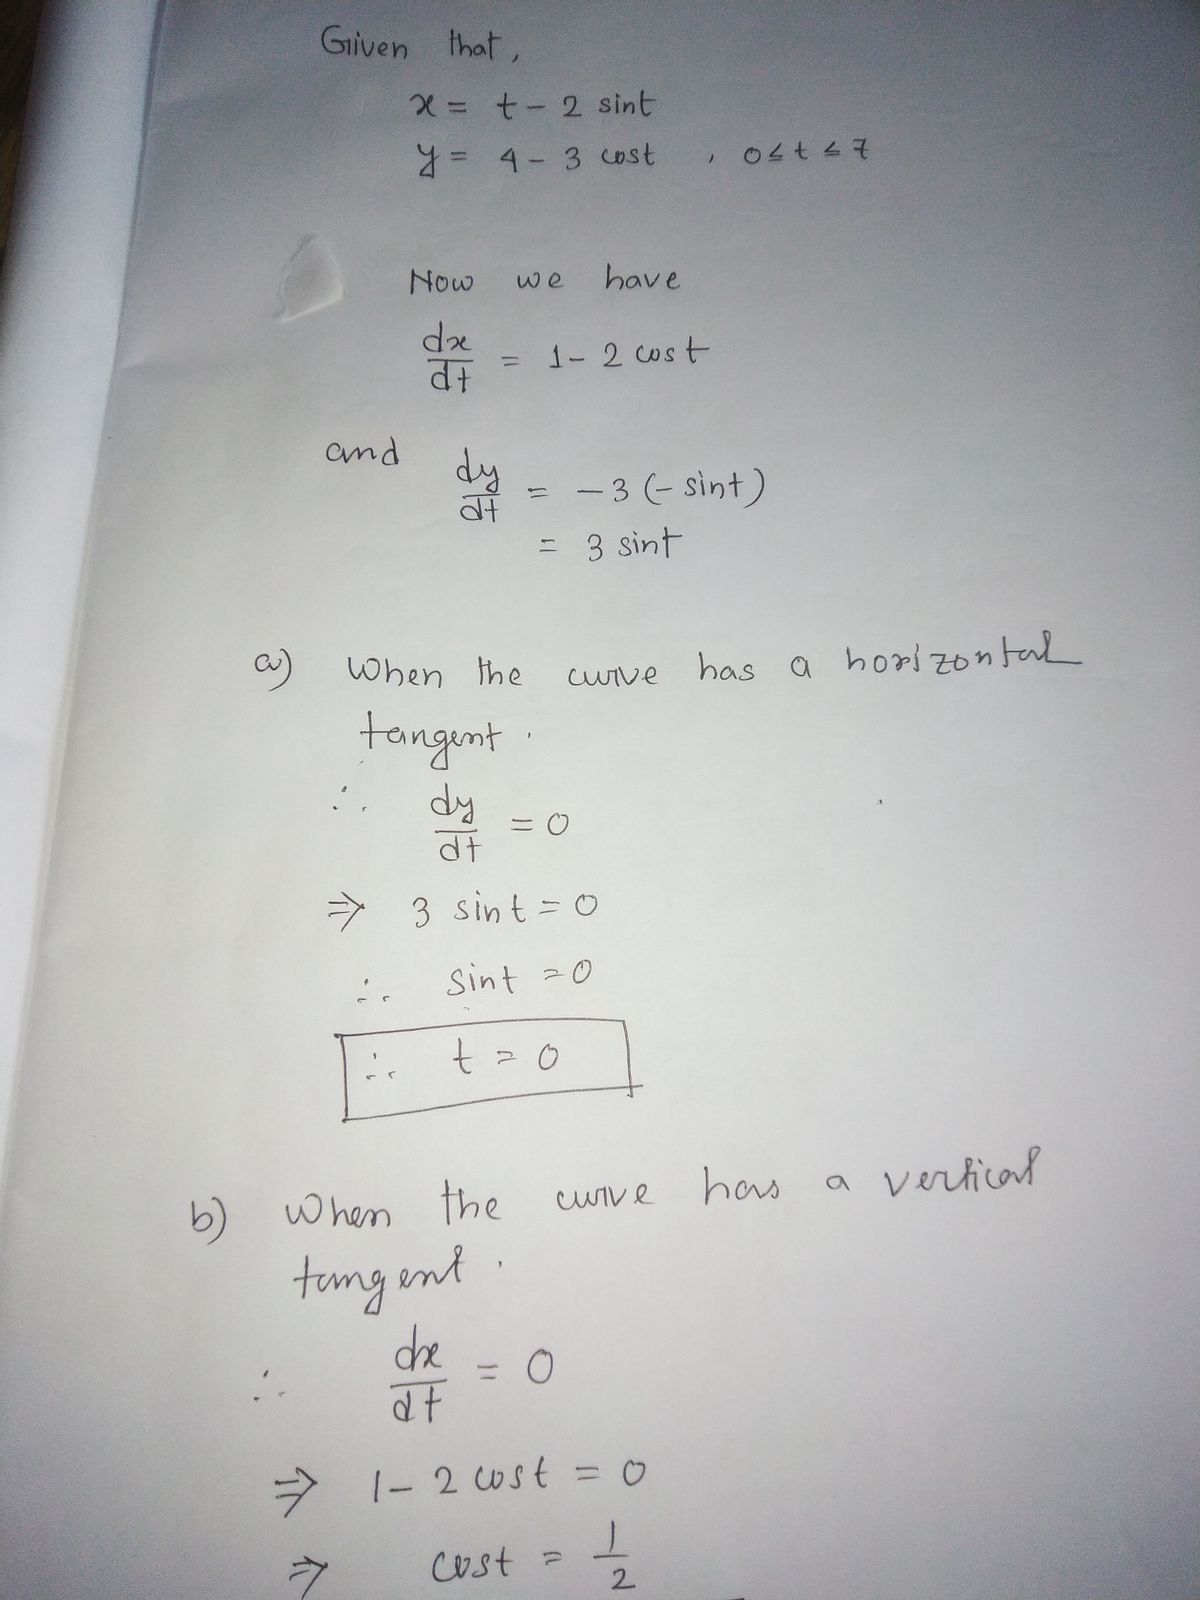 Given that,
x = t - 2 sint
y = 4 - 3 cost , 0 ≤ t ≤ 7
Now we have
dx/dt = 1 - 2 cost
and dy/dt = -3 (- sint)
= 3 sint
a) When the curve has a horizontal
tangent.
∴ dy/dt = 0
⇒ 3 sint = 0
∴ sint = 0
∴ t = 0
b) When the curve has a vertical
tangent.
∴ dx/dt = 0
⇒ 1 - 2 cost = 0
⇒ cost = 1/2